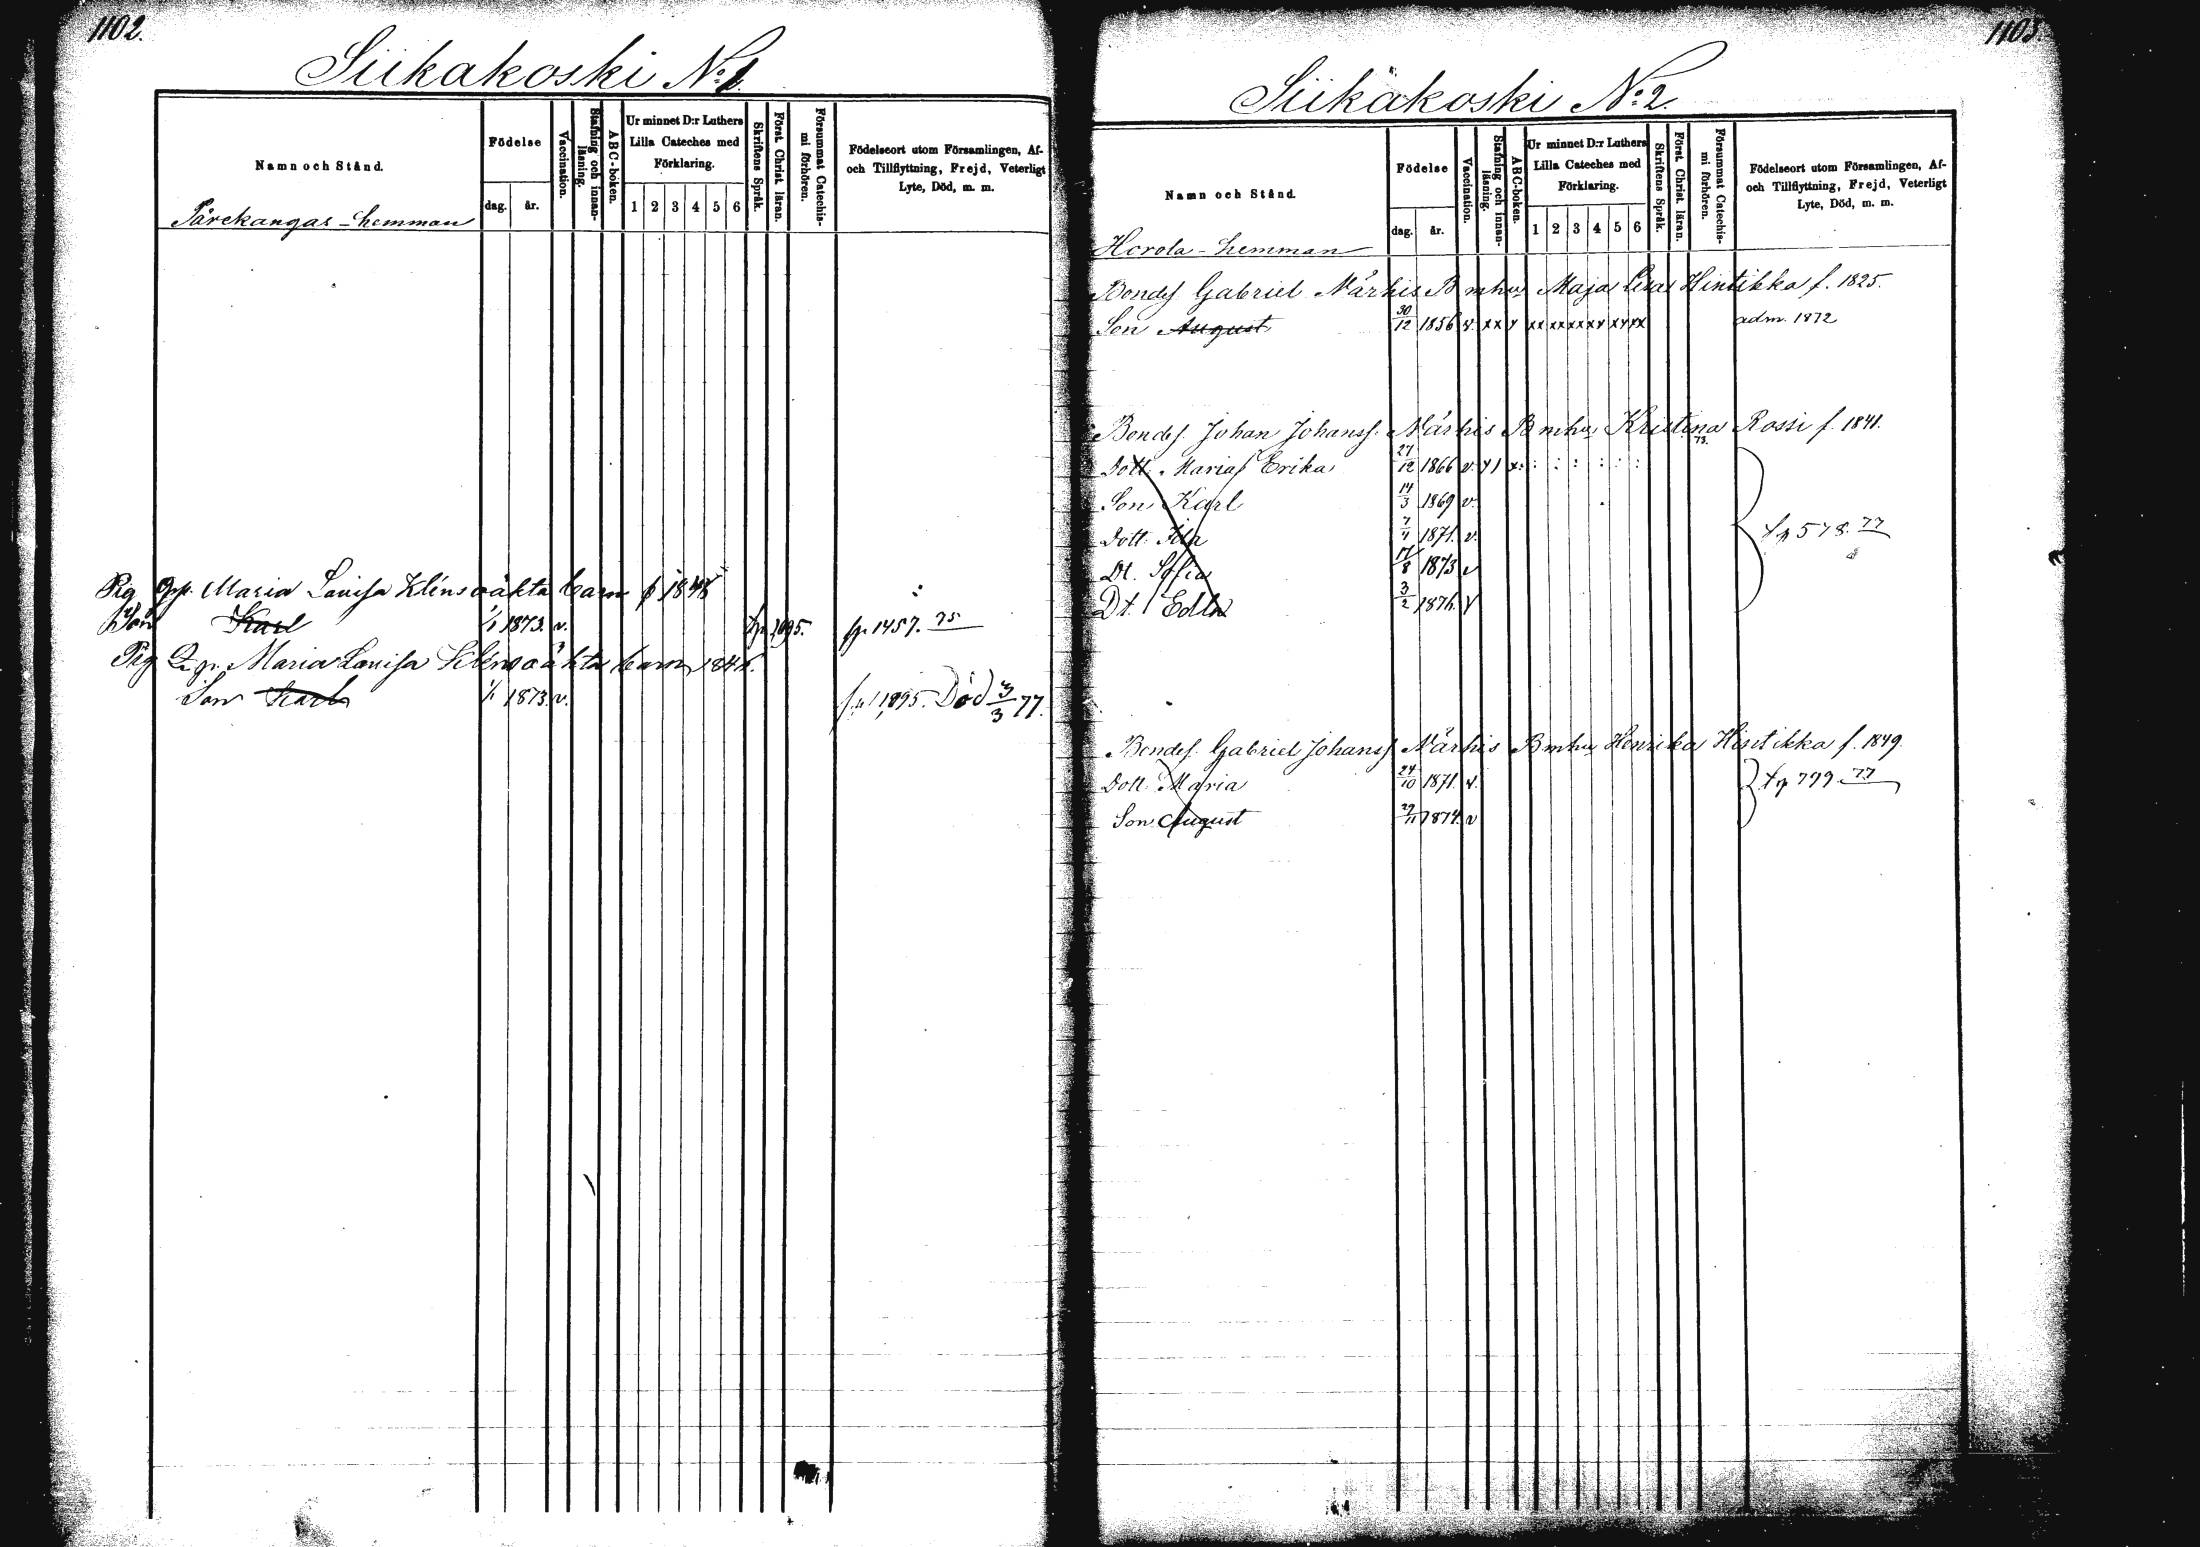 1102.
Siikakoski No: 1.
Namn och Stånd.
Födelse
dag.
år.
Vaccination.
Stafning och innanläsning.
ABC-boken.
Ur minnet D:r Luthers
Lilla Cateches med
Förklaring.
1 2 3 4 5 6
Skriftens Språk.
Förat. Christ. läran.
Försummat Catechismi förhören.
Födelseort utom Församlingen, Af-
och Tillflyttning, Frejd, Veterligt
Lyte, Död, m. m.
Pärekangas - hemman
Pig Maria Lovisa barn f 1848
Son Karl 1/1 1873. v. 1095. fp 1457. 75
Pig Maria Lovisa barn 184
Son Karl 1/1 1873. v. 1895. Död 3/3 77.
1103.
Siikakoski No: 2.
Namn och Stånd.
Födelse
dag.
år.
Vaccination.
Stafning och innanläsning.
ABC-boken.
Ur minnet D:r Luthers
Lilla Cateches med
Förklaring.
1 2 3 4 5 6
Skriftens Språk.
Förat. Christ. läran.
Försummat Catechismi förhören.
Födelseort utom Församlingen, Af-
och Tillflyttning, Frejd, Veterligt
Lyte, Död, m. m.
Herola - hemman
Bondes Gabriel Närhis B m hu Maja Lisa Hintikka f. 1825.
Son August 30/12 1856 v. xx x xx xx xx xx xx xx adm. 1872
Bondes. Johan Johanss. Närhis B m hu Kristina Rossi f. 1841.
73.
Dott. Maria Erika 27/12 1866 v.
Son Karl 14/3 1869 v.
Dott. Ida 7/4 1871. v.
Dt. Sofia 17/8 1873 v
Dt. Edla 3/2 1876. v
tp 578. 77
Bondes. Gabriel Johanss Närhis B m hu Henrika Hintikka f. 1849.
Dott. Maria 24/10 1871. v.
Son August 29/11 1874. v
tp 799 77